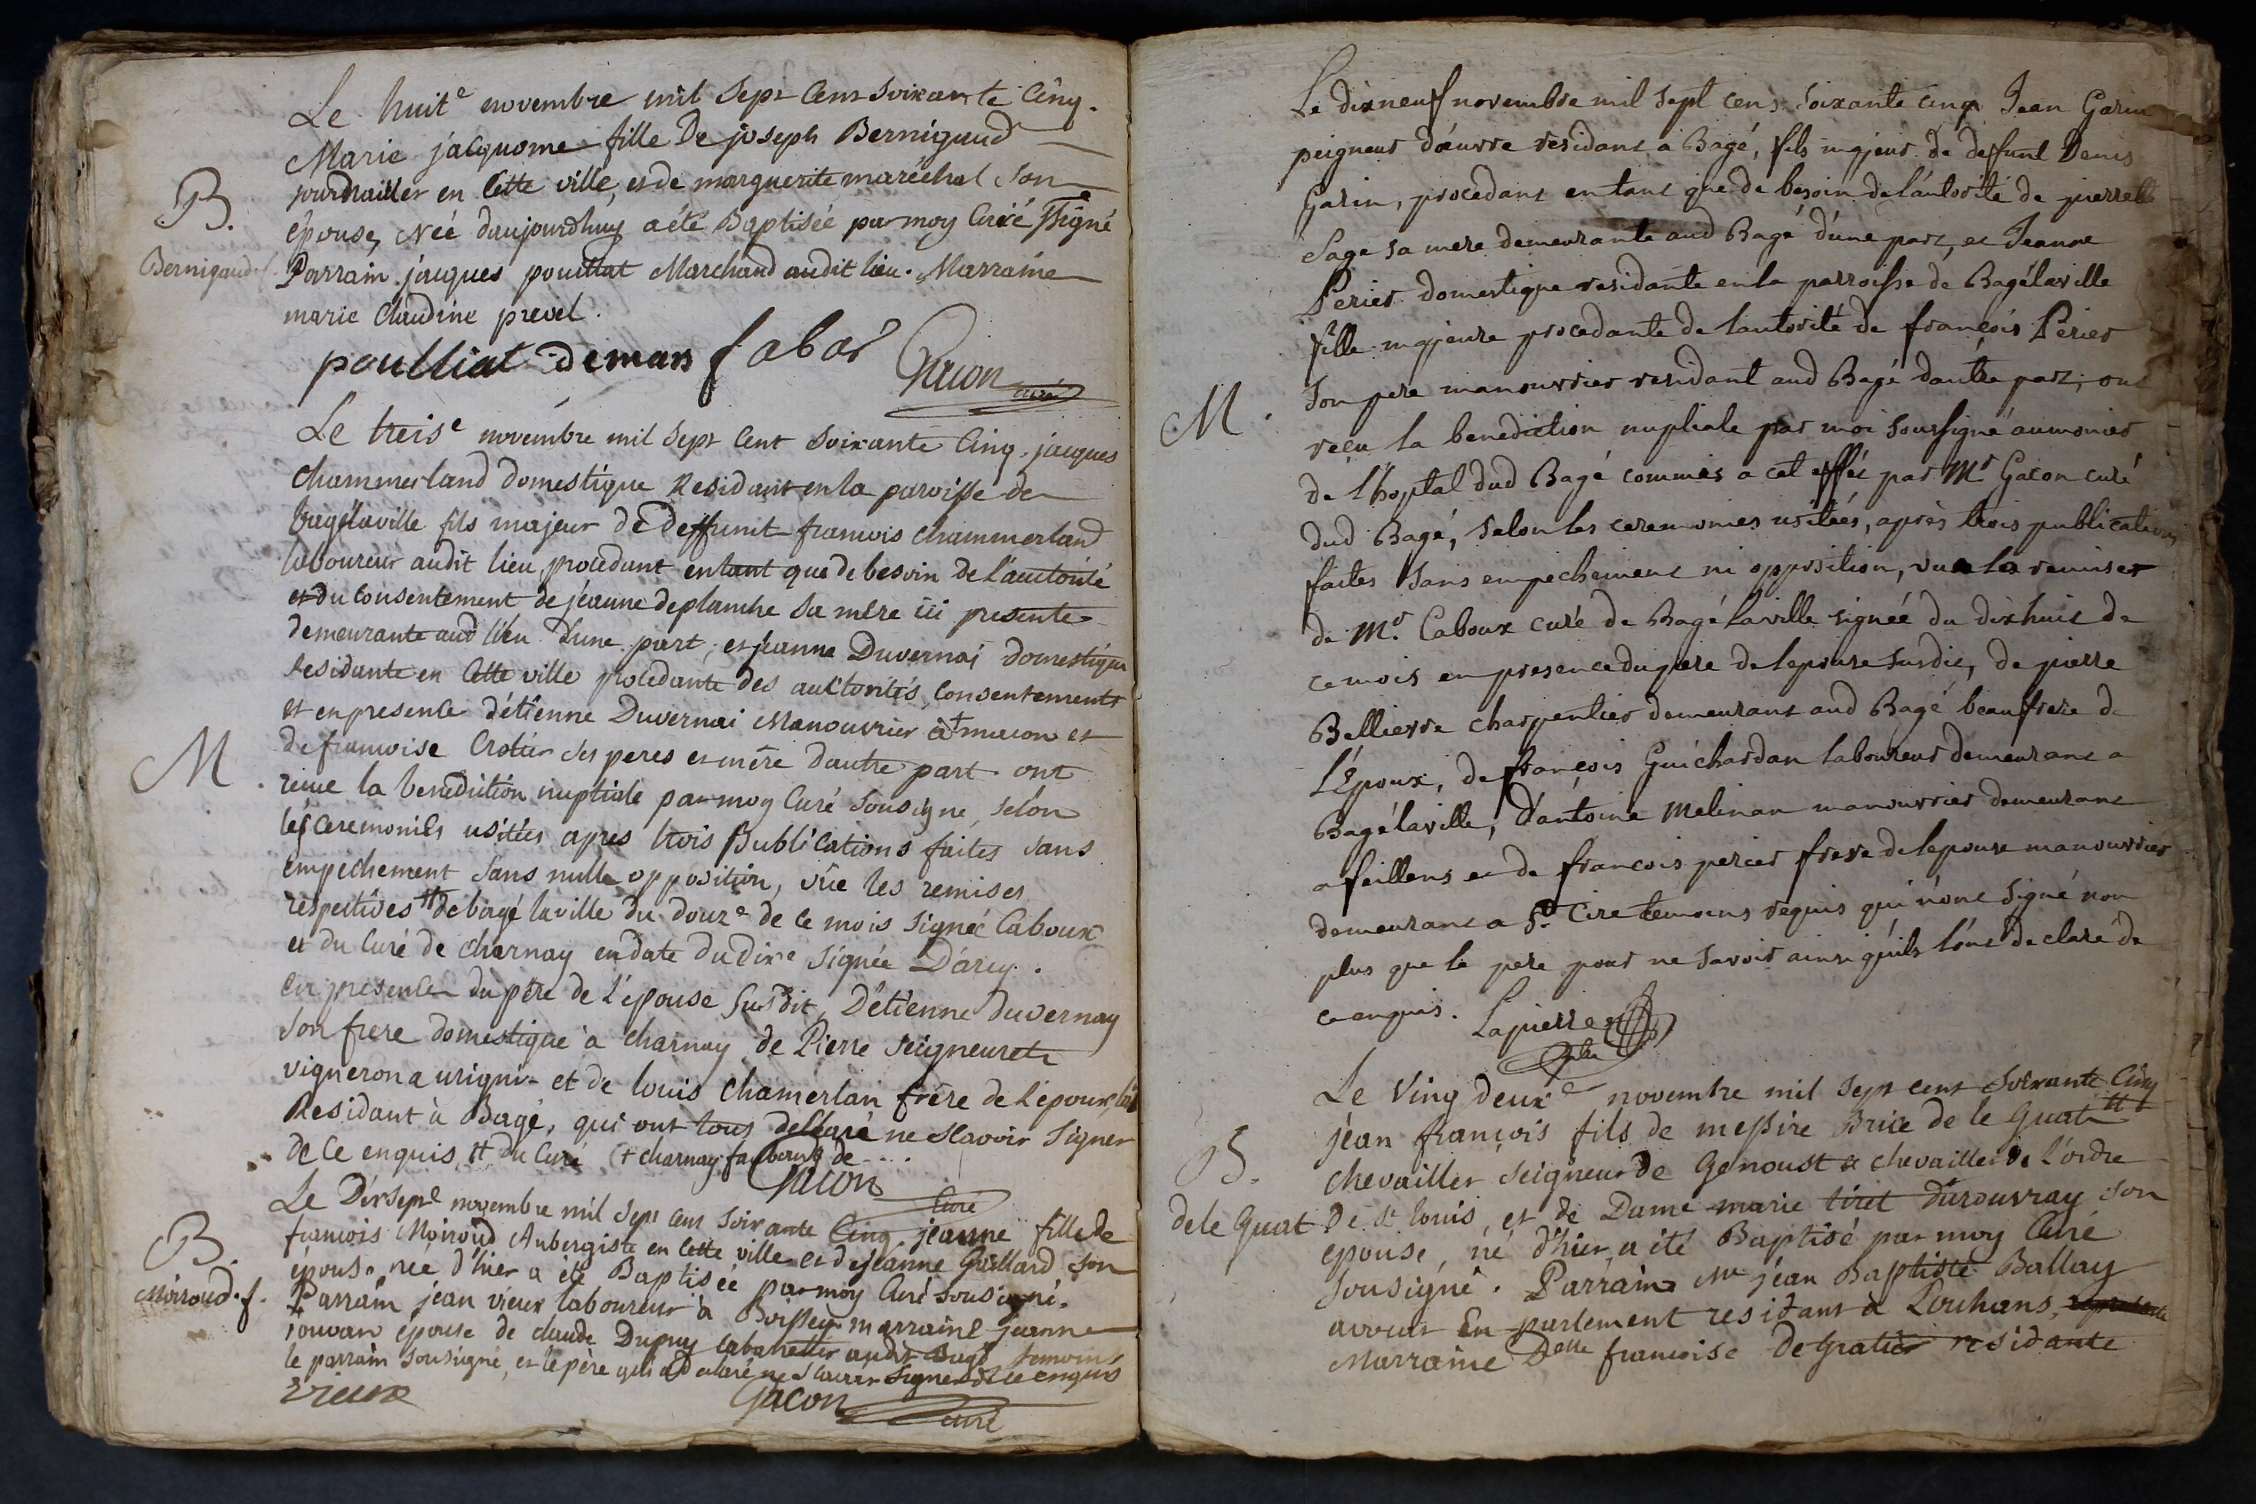 Le huit^e novembre mil sept Cent Soixante Cinq.
Marie jacquome fille De joseph Bernigaud
journailler en Cette ville, et de marguerite maréchal Son
épouse, Née daujourdhuy a été Baptisée par moy Curé ssigné
B.
Bernigaud f. Parrain jacques pouillat Marchand audit lieu. Marraine
marie Claudine prevel.
poulliat demars fabar Gacon curé
Le treis^e novembre mil Sept Cent Soixante Cinq. jacques
Chammerland Domestique Residant en la paroisse de
bagélaville fils majeur de Deffunt francois Chammerland
laboureur audit lieu, procedant entant que de besoin de l'autorité
et du Consentement de jéanne deplanche Sa mère ici presente
demeurante aud lieu D'une part, et jeanne Duvernai domestique
residante en Cette ville procedante des authorités, Consentements
et en presence d'étienne Duvernai Manouvrier à + macon et
de francoise Crotier Ses peres et mère d'autre part. ont
M.
reçue la benediction nuptiale par moy Curé Sousigne, Selon
les Ceremonies usitées apres trois Publications faites Sans
empechement Sans nulle opposition, vûe les remises
respectives # de bagé laville du douz^e de Ce mois Signée Caboux
et du Curé de Charnay en date du Dix^e Signée D'arcy.
En presence du père de l'épouse Susdit, D'étienne duvernay
Son frere domestique à Charnay de Pierre Seigneuret
vigneron a urigni et de louis Chamerlan frère de l'epoux
Residant à Bagé, qui ont tous dellaré ne Scavoir Signer
de Ce enquis # du Curé (+ Charnay faubourg de....
Gacon Curé
Le Dixsept^e novembre mil Sept Cent Soixante Cinq. jeanne fille de
francois Moiroud Aubergiste en Cette ville et de jéanne Guillard Son
B.
épouse née d'hier a été Baptisée par moy Curé Sousigné.
Moiroud. f. Parrain jéan vieux laboureur à Boissey marraine jeanne
jouvan épouse de claude Dupuy Cabaretier audit Bagé temoins
le parrain Sousigné, et le père qui a Declaré ne Scavoir Signer de Ce enquis
vieux Gacon curé
Le dixneuf novembre mil sept cens soixante cinq Jean Garin
peigneur d'œuvre residant a Bagé, fils majeur de deffunt Denis
Garin, procedant en tant que de besoin de l'autorité de pierrette
Sage sa mere demeurante aud Bagé d'une part, et Jeanne
Perier domestique residante en la parroisse de Bagélaville
fille majeure procedante de l'autorité de françois Périer
Son pere manouvrier residant aud Bagé d'autre part, ont
M.
reçu la benediction nuptiale par moi Soussigné aumonier
de l'hoptal dud Bagé commis a cet effet par M^r Gacon curé
dud Bagé, Selon les ceremonies usitées, après trois publications
faites Sans empechement ni opposition, vu la remise
de M^r. Caboux curé de Bagé laville signée du dixhuit de
ce mois en presence du pere de l'epouse susdit, de pierre
Bellierre charpentier demeurant aud Bagé beaufrere de
l'Epoux, de françois Guichardan laboureur demeurant a
Bagélaville, d'antoine Melinan manouvrier demeurant
a feillens et de françois perier frere de l'epouse manouvrier
demeurant a S^t. Cire temoins requis qui n'ont Signé non
plus que le pere pour ne Savoir ainsi qu'ils l'ont declaré de
ce enquis. Lapierre ptre
Le Vingdeux^e novembre mil Sept cent Soixante Cinq
jéan françois fils de messire Brice de le Guat
B.
chevailler Seigneur de Genoust & chevailler de l'ordre
de le Guat De St louis, et de Dame marie tiret durouvray Son
épouse, né d'hier, a été Baptisé par moy Curé
Sousigné. Parrain Mr jéan Baptiste Ballay
avocat En parlement residant à Louhans,
Marraine D^elle francoise deGratier residante